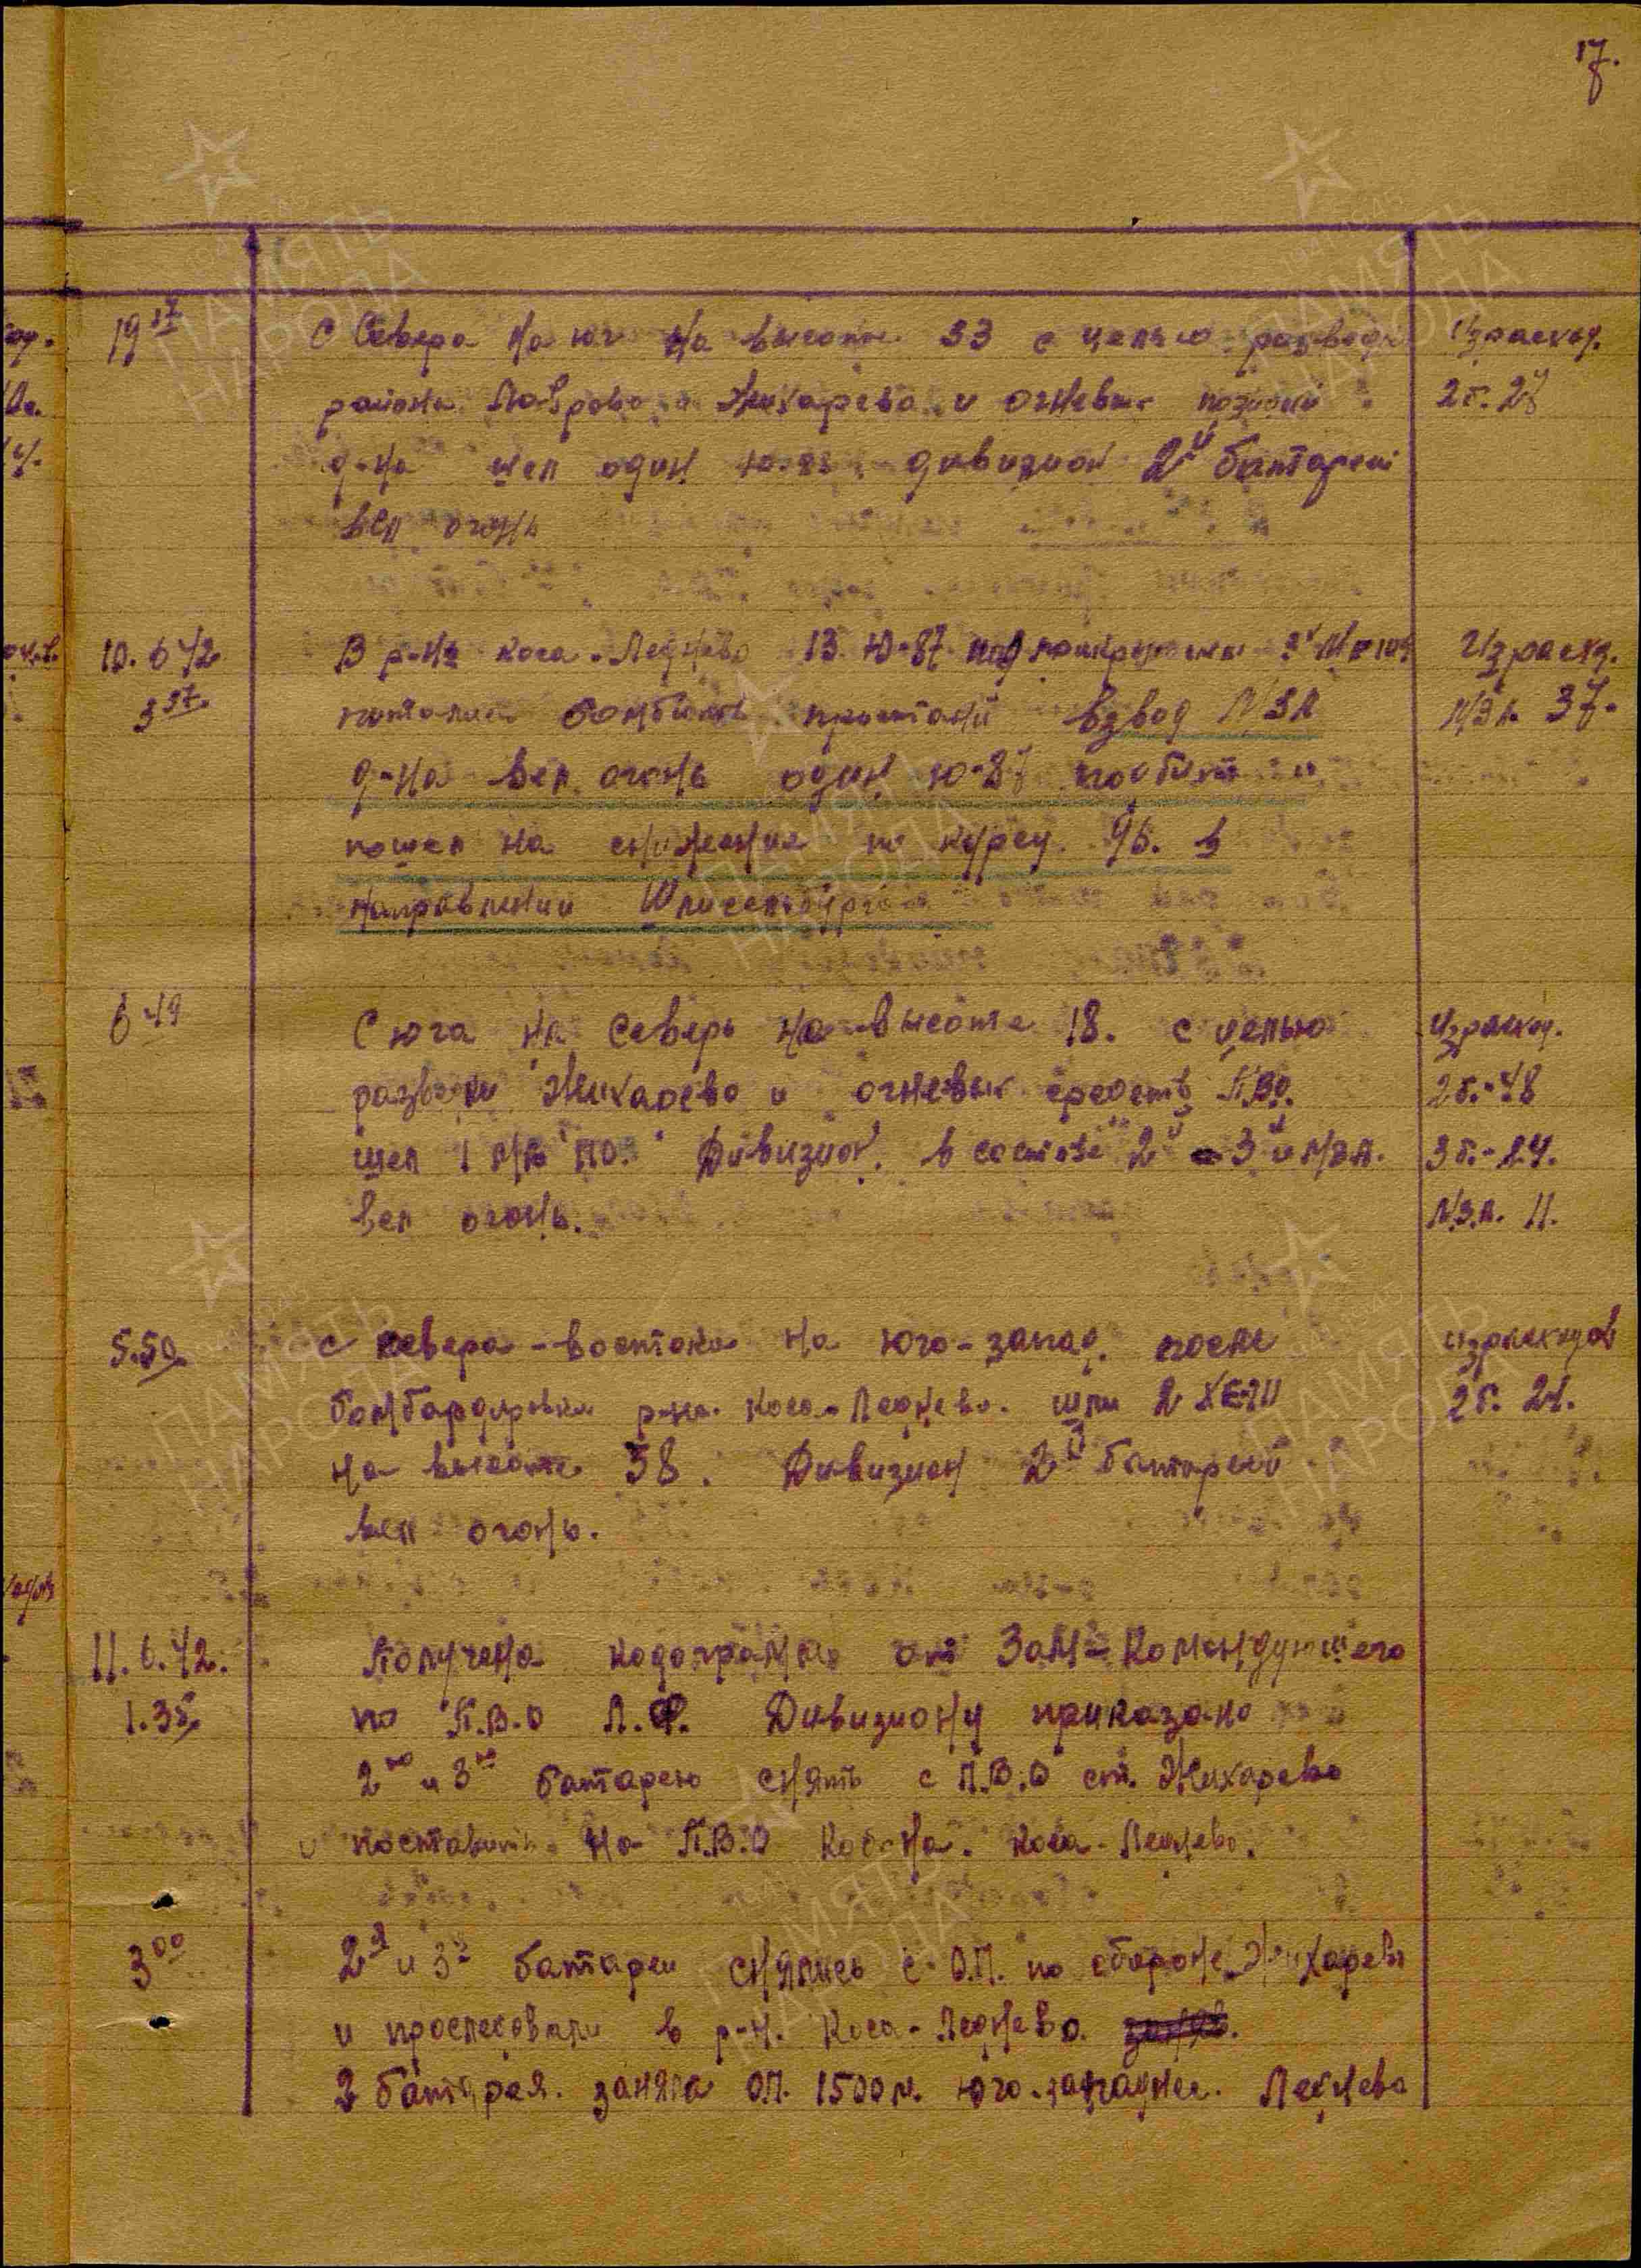 17.
19 37 С Севера на юг на высоте 33 с целью разведки Израсход.
района Лаврово и Жихарево и огневых позиций 2б. 27
д-на шел один дивизион 2й батареей
вел огонь
10.6 42 В р-не коса-Леднево 13 Ю-87 под прикрытием Израсх.
3 37. пытались бомбить пристани взвод МЗА МЗА. 37.
д-на вел огонь один Ю-87 подбит и
пошел на снижение по курсу в
направлении Шлиссельбурга
6 49 С юга на Север на высоте 18. с целью Израсход.
разведки Жихарево и огневых средств ПВО. 2б.-48
шел 1 Дивизион в составе 2й и 3й и МЗА. 3б.-24.
вел огонь. МЗА. 11.
5.50. С севера-востока на юго-запад. после израсходов
бомбардировки р-на. коса-Леднево. шли 2 ХЕ-111 2б. 21.
на высоте 38. Дивизион 2й батареей
вел огонь.
11.6.42. Получена кодограмма от Зам-Командующего
1.35 по П.В.О Л.Ф. Дивизиону приказано
2ю и 3ю батарею снять с П.В.О ст. Жихарево
и поставить на П.В.О коса-Леднево.
3 00 2я и 3я батареи снялись с О.П. по обороне Жихарево
и проследовали в р-н. Коса-Леднево.
2 батарея. заняла ОП. 1500 м. юго-западнее. Леднево
ПАМЯТЬ
НАРОДА
ПАМЯТЬ
НАРОДА
ПАМЯТЬ
НАРОДА
ПАМЯТЬ
НАРОДА
ПАМЯТЬ
НАРОДА
ПАМЯТЬ
НАРОДА